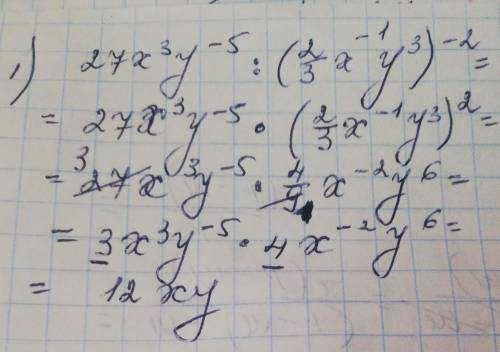 1) 27x³y⁻⁵ : (2/3 x⁻¹y³)⁻² =
= 27x³y⁻⁵ · (2/3 x⁻¹y³)² =
= ³27x³y⁻⁵ · 4/9 x⁻²y⁶ =
= 3x³y⁻⁵ · 4x⁻²y⁶ =
= 12xy